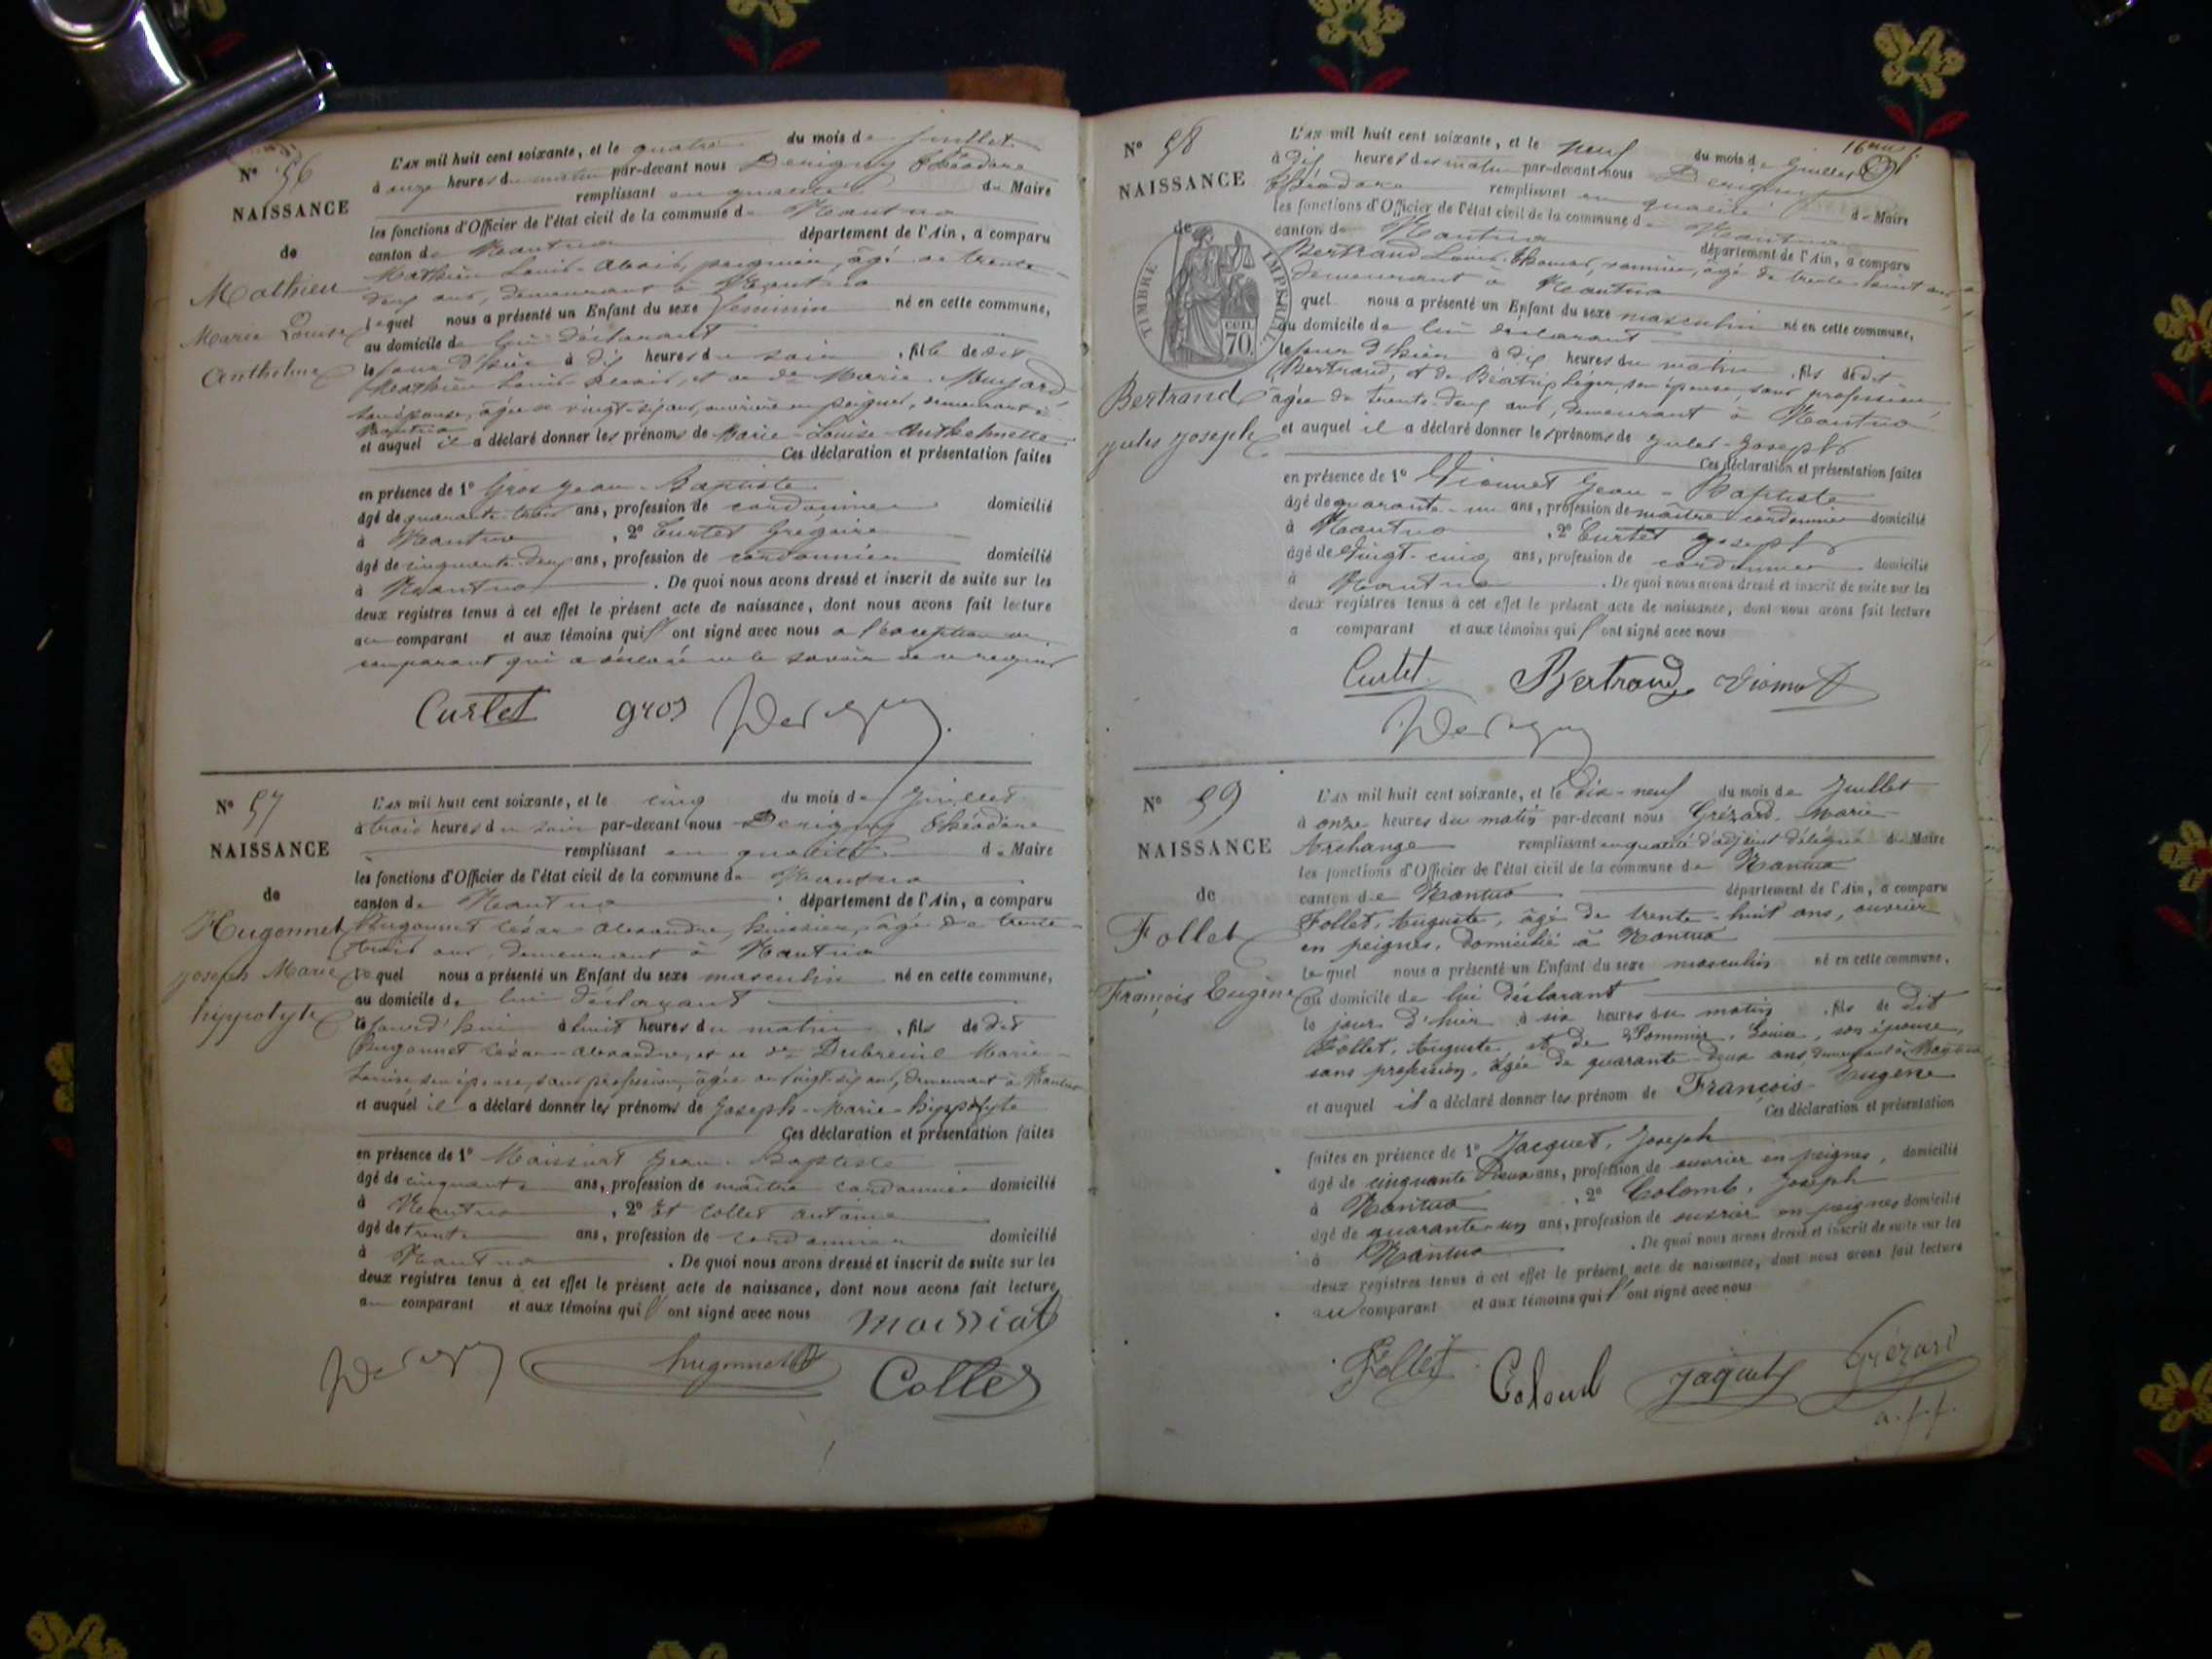 N° 56
NAISSANCE
de
Mathieu
Marie Louise
Anthelme
L'AN mil huit cent soixante, et le quatre du mois de Juillet
à onze heures du matin par-devant nous Derigny Théodore
remplissant en qualité de Maire
les fonctions d'Officier de l'état civil de la commune de Nantua
canton de Nantua département de l'Ain, a comparu
Mathieu Louis-Alexis, âgé de trente
deux ans, demeurant à Nantua
lequel nous a présenté un Enfant du sexe féminin né en cette commune,
au domicile de lui déclarant
le jour d'hier à dix heures du soir, fille de dit
Mathieu Louis Alexis, et de de Marie
son épouse, âgée de vingt-six ans, ouvrière en peignes, demeurant à
Nantua
et auquel il a déclaré donner les prénoms de Marie-Louise-Anthelmette
Ces déclaration et présentation faites
en présence de 1° Gros Jean-Baptiste
âgé de quarante-trois ans, profession de cordonnier domicilié
à Nantua, 2° Curtet Grégoire
âgé de cinquante-deux ans, profession de cordonnier domicilié
à Nantua. De quoi nous avons dressé et inscrit de suite sur les
deux registres tenus à cet effet le présent acte de naissance, dont nous avons fait lecture
au comparant et aux témoins qui l'ont signé avec nous à l'exception du
comparant qui a déclaré ne le savoir de ce requis
Curtet gros Derigny
N° 57
NAISSANCE
de
Hugonnet
Joseph Marie
hippolyte
L'AN mil huit cent soixante, et le cinq du mois de Juillet
à trois heures du soir par-devant nous Derigny Théodore
remplissant en qualité de Maire
les fonctions d'Officier de l'état civil de la commune de Nantua
canton de Nantua département de l'Ain, a comparu
Hugonnet César-Alexandre, huissier, âgé de trente-
trois ans, demeurant à Nantua
lequel nous a présenté un Enfant du sexe masculin né en cette commune,
au domicile de lui déclarant
le jourd'hui à huit heures du matin, fils de dit
Hugonnet César-Alexandre, et de de Dubreuil Marie-
Louise son épouse, sans profession, âgée de vingt-six ans, demeurant à Nantua
et auquel il a déclaré donner les prénoms de Joseph-Marie-hippolyte
Ces déclaration et présentation faites
en présence de 1° Maissiat Jean-Baptiste
âgé de cinquante ans, profession de maître cordonnier domicilié
à Nantua, 2° Et Collet Antoine
âgé de trente ans, profession de cordonnier domicilié
à Nantua. De quoi nous avons dressé et inscrit de suite sur les
deux registres tenus à cet effet le présent acte de naissance, dont nous avons fait lecture
au comparant et aux témoins qui l'ont signé avec nous maissiat
Derigny hugonnet Collet
N° 58
NAISSANCE
de
TIMBRE IMPERIAL
70. cen.
Bertrand
Jules Joseph
L'AN mil huit cent soixante, et le neuf du mois de Juillet
à dix heures du matin par-devant nous Derigny
Théodore remplissant en qualité de Maire
les fonctions d'Officier de l'état civil de la commune de Nantua
canton de Nantua département de l'Ain, a comparu
Bertrand Louis-Thomas, âgé de trente-huit ans,
demeurant à Nantua
quel nous a présenté un Enfant du sexe masculin né en cette commune,
au domicile de lui déclarant
le jour d'hier à dix heures du matin, fils de dit
Bertrand, et de Béatrix Léger, son épouse, sans profession,
âgée de trente-deux ans, demeurant à Nantua
et auquel il a déclaré donner les prénoms de Jules-Joseph
Ces déclaration et présentation faites
en présence de 1° Vionnet Jean-Baptiste
âgé de quarante-un ans, profession de maître cordonnier domicilié
à Nantua, 2° Curtet Joseph
âgé de vingt-cinq ans, profession de cordonnier domicilié
à Nantua. De quoi nous avons dressé et inscrit de suite sur les
deux registres tenus à cet effet le présent acte de naissance, dont nous avons fait lecture
a comparant et aux témoins qui l'ont signé avec nous
Curtet Bertrand Vionnet
Derigny
N° 59
NAISSANCE
de
Follet
François Eugène
L'AN mil huit cent soixante, et le dix-neuf du mois de Juillet
à onze heures du matin par-devant nous Grézard, Marie-
Archange remplissant en qualité d'adjoint délégué du Maire
les fonctions d'Officier de l'état civil de la commune de Nantua
canton de Nantua département de l'Ain, a comparu
Follet, Auguste, âgé de trente-huit ans, ouvrier
en peignes, domicilié à Nantua
lequel nous a présenté un Enfant du sexe masculin né en cette commune,
au domicile de lui déclarant
le jour d'hier à six heures du matin, fils de dit
Follet, Auguste et de Pommier, Louise, son épouse,
sans profession, âgée de quarante-deux ans, demeurant à Nantua
et auquel il a déclaré donner les prénom de François-Eugène
Ces déclaration et présentation
faites en présence de 1° Jacquet, Joseph
âgé de cinquante Deux ans, profession de ouvrier en peignes, domicilié
à Nantua, 2° Colomb, Joseph
âgé de quarante-un ans, profession de ouvrier en peignes domicilié
à Nantua. De quoi nous avons dressé et inscrit de suite sur les
deux registres tenus à cet effet le présent acte de naissance, dont nous avons fait lecture
au comparant et aux témoins qui l'ont signé avec nous
Follet Colomb Jaquet Grézard
a.f.f.